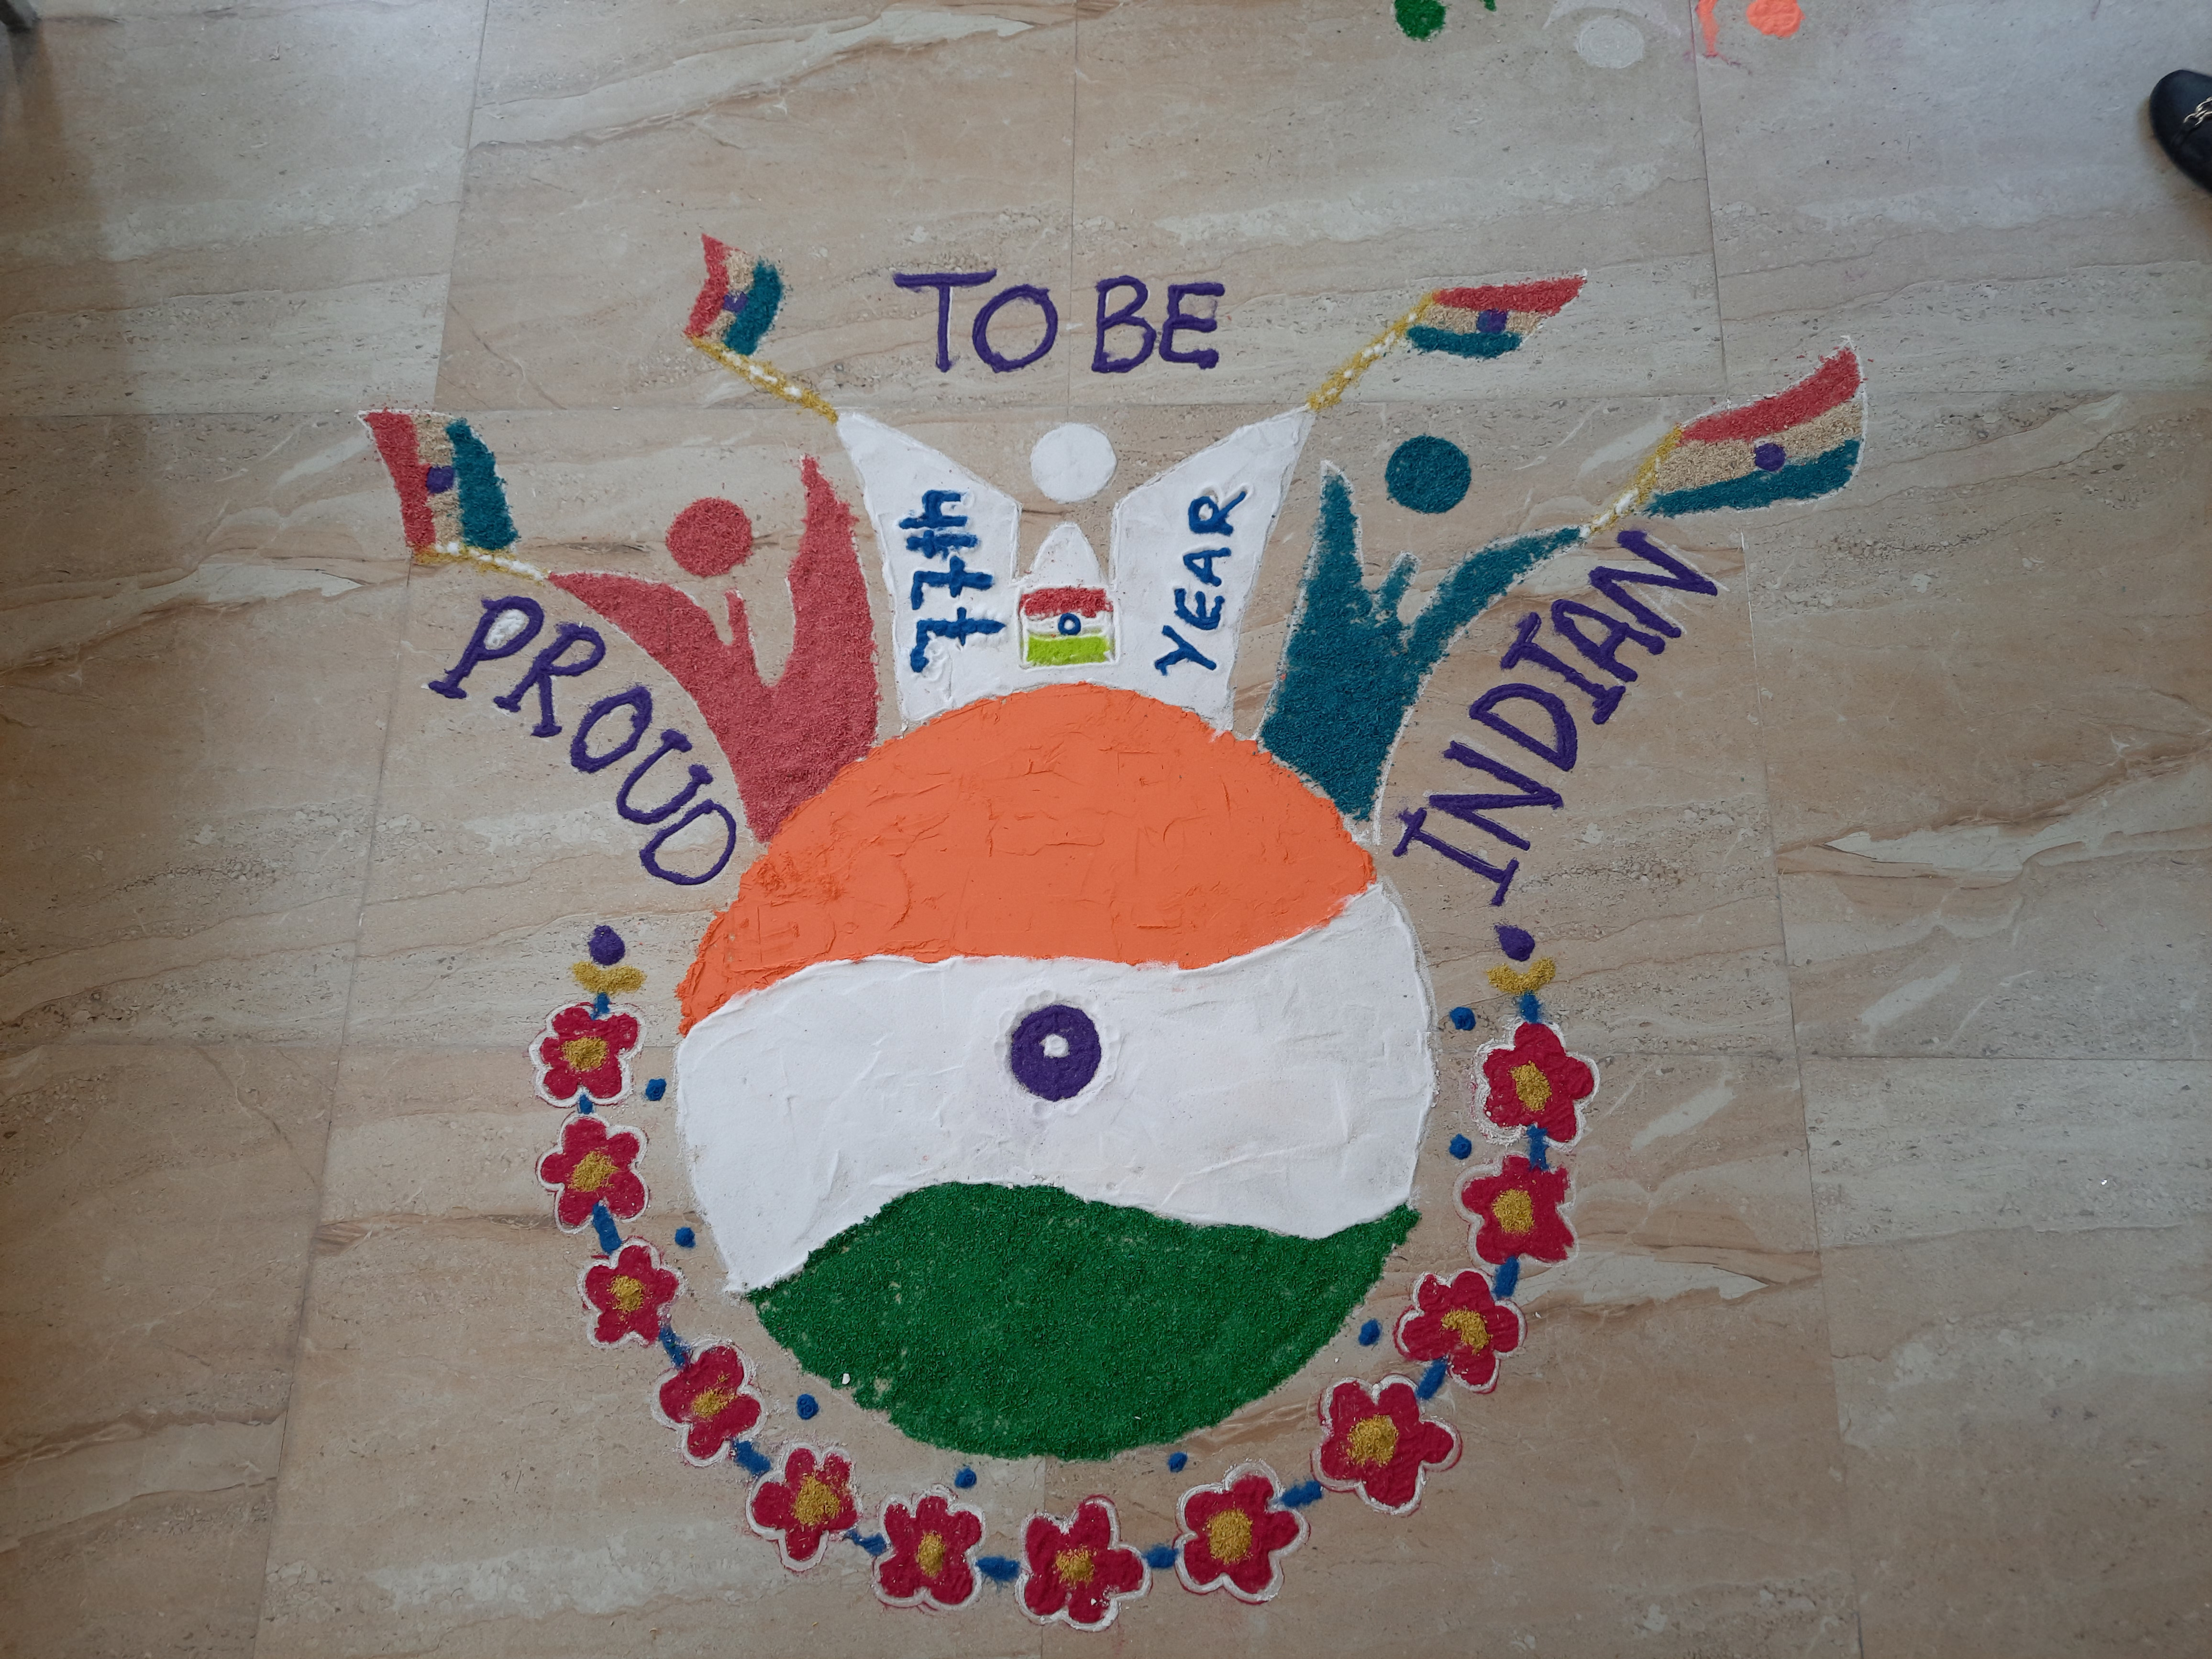 PROUD
TO BE
INDIAN
77th
YEAR